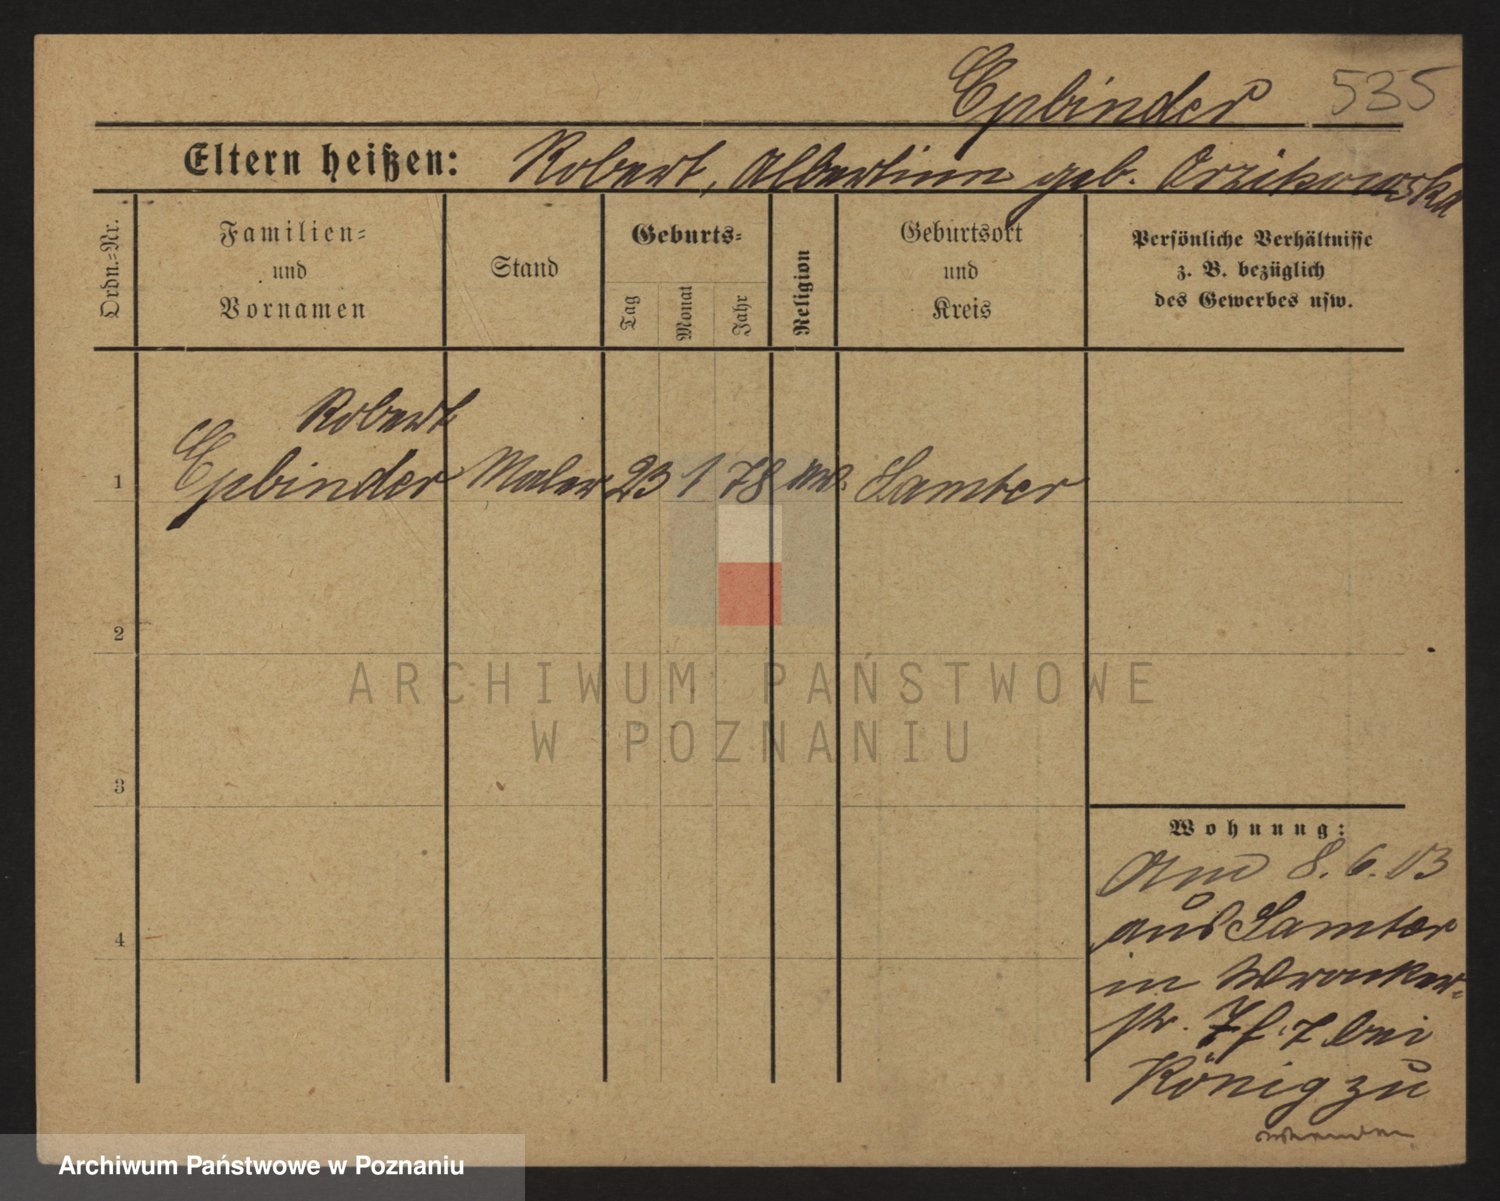 Epbinder 535
Eltern heißen: Robert, Albertine geb. Orzikowska
Ordn.-Nr.
Familien-
und
Vornamen
Stand
Geburts-
Tag
Monat
Jahr
Religion
Geburtsort
und
Kreis
Persönliche Verhältnisse
z. B. bezüglich
des Gewerbes usw.
Robert
1 Epbinder Maler 23 1 78 Samter
2
3
4
ARCHIWUM PAŃSTWOWE
W POZNANIU
Wohnung:
Am 8.6.03
aus Samter
in Wronker-
str. 7 f. 7 bei
König zu
wenden
Archiwum Państwowe w Poznaniu